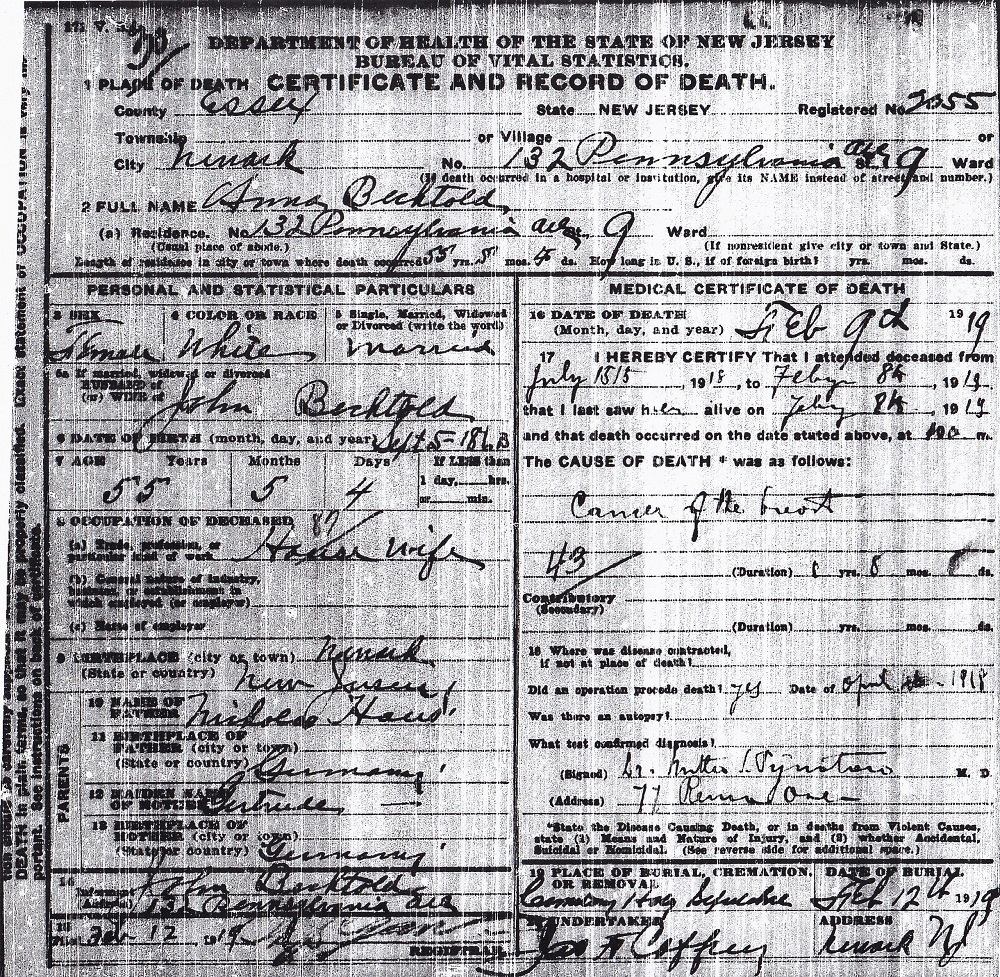 DEPARTMENT OF HEALTH OF THE STATE OF NEW JERSEY
BUREAU OF VITAL STATISTICS.
1 PLACE OF DEATH CERTIFICATE AND RECORD OF DEATH.
County Essex State NEW JERSEY Registered No 2355
Township or Village or
City Newark No. 132 Pennsylvania ave St. 9 Ward
(If death occurred in a hospital or institution, give its NAME instead of street and number.)
2 FULL NAME Anna Bechtold
(a) Residence. No 132 Pennsylvania ave St. 9 Ward
(Usual place of abode.) (If nonresident give city or town and State.)
Length of residence in city or town where death occurred 55 yrs. 5 mos. 4 ds. How long in U. S., if of foreign birth? yrs. mos. ds.
PERSONAL AND STATISTICAL PARTICULARS
3 SEX 4 COLOR OR RACE 5 Single, Married, Widowed or Divorced (write the word)
Female White Married
5a If married, widowed or divorced
HUSBAND of
(or) WIFE of John Bechtold
6 DATE OF BIRTH (month, day, and year) Sept 5- 1863
7 AGE Years Months Days If LESS than
1 day, hrs.
or min.
55 5 4
8 OCCUPATION OF DECEASED
(a) Trade, profession, or
particular kind of work House wife
(b) General nature of industry,
business, or establishment in
which employed (or employer)
(c) Name of employer
9 BIRTHPLACE (city or town) Newark
(State or country) New Jersey
PARENTS
10 NAME OF
FATHER Nicholas
11 BIRTHPLACE OF
FATHER (city or town)
(State or country) Germany
12 MAIDEN NAME
OF MOTHER Gertrude —
13 BIRTHPLACE OF
MOTHER (city or town)
(State or country) Germany
14
Informant John Bechtold
Address 132 Pennsylvania ave
15
Filed Feb 12 1919
REGISTRAR
MEDICAL CERTIFICATE OF DEATH
16 DATE OF DEATH
(Month, day, and year) Feb 9th 1919
17 I HEREBY CERTIFY That I attended deceased from
July , 1918, to Feby 8th, 1919
that I last saw her alive on Feby 8th 1919
and that death occurred on the date stated above, at m.
The CAUSE OF DEATH * was as follows:
Cancer of the breast
43
(Duration) yrs. 8 mos. ds.
Contributory
(Secondary)
(Duration) yrs. mos. ds.
18 Where was disease contracted,
if not at place of death?
Did an operation precede death? yes Date of April 1918
Was there an autopsy?
What test confirmed diagnosis?
(Signed) Dr. M. D.
(Address) 77 Penna Ave
*State the Disease Causing Death, or in deaths from Violent Causes,
state (1) Means and Nature of Injury, and (2) whether Accidental,
Suicidal or Homicidal. (See reverse side for additional space.)
19 PLACE OF BURIAL, CREMATION, OR REMOVAL DATE OF BURIAL
Cemetery Holy Sepulchre Feb 12th 1919
20 UNDERTAKER ADDRESS
Jas F. Caffrey Newark NJ